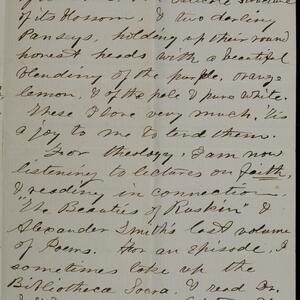 of its blossom, & two darling
Pansys, holding up their round
honest heads with a beautiful
blending of the purple, orange
lemon, & of the pale & pure white.
These I love very much, 'tis
a joy to me to tend them.
For theology, I am now
listening to lectures on faith,
& reading in connection
"The Beauties of Ruskin" &
Alexander Smith's last volume
of Poems. For an episode, I
sometimes take up the
Bibliotheca Sacra. I read Dr.